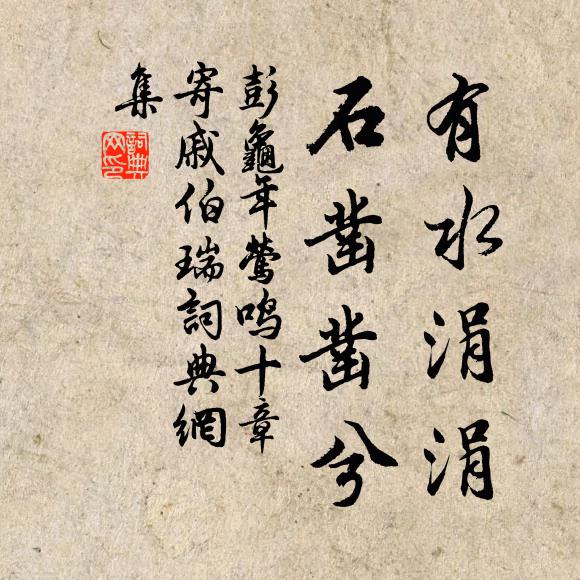 有水涓涓
石凿凿兮
彭龜年鶯鳴十章
寄戚伯瑞詞典網
集
詞典网印